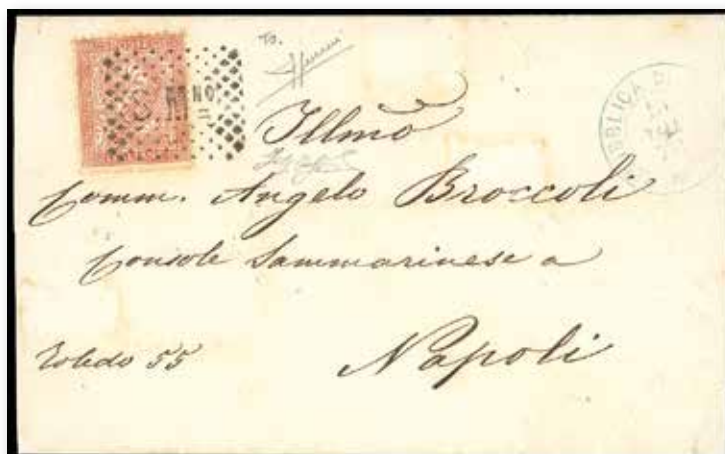 To.
RINO
BBLICA D
Illmo
Comm. Angelo Broccoli
Console Sammarinese a
Toledo 55
Napoli